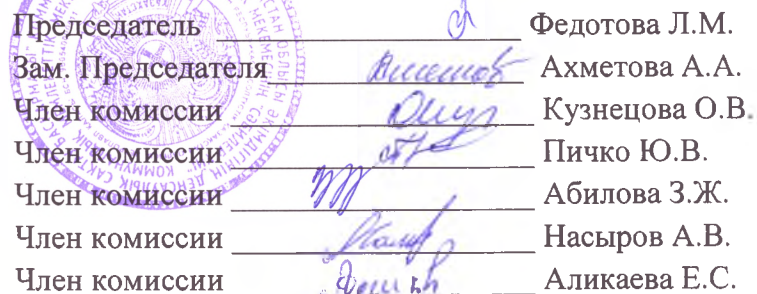 Председатель Федотова Л.М.
Зам. Председателя Ахметова А.А.
Член комиссии Кузнецова О.В.
Член комиссии Пичко Ю.В.
Член комиссии Абилова З.Ж.
Член комиссии Насыров А.В.
Член комиссии Аликаева Е.С.